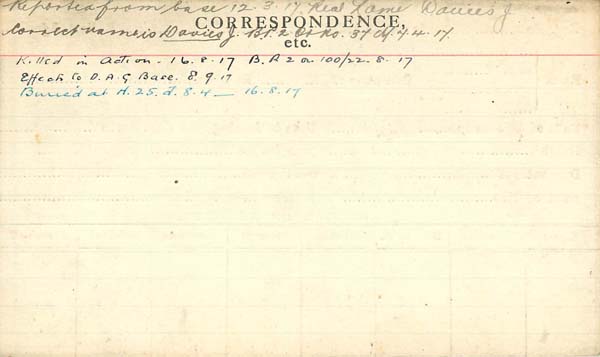 Reported from base 12.3.17 Real Name Davies J
CORRESPONDENCE,
Correct name is Davies J. Bt. 2 Ord No. 37 of 7.4.17.
etc.
Killed in Action - 16.8.17 B.R 2 on 100/22.8.17
Effects to D.A.G Base. 8.9.17
Buried at H.25.d.8.4 — 16.8.17